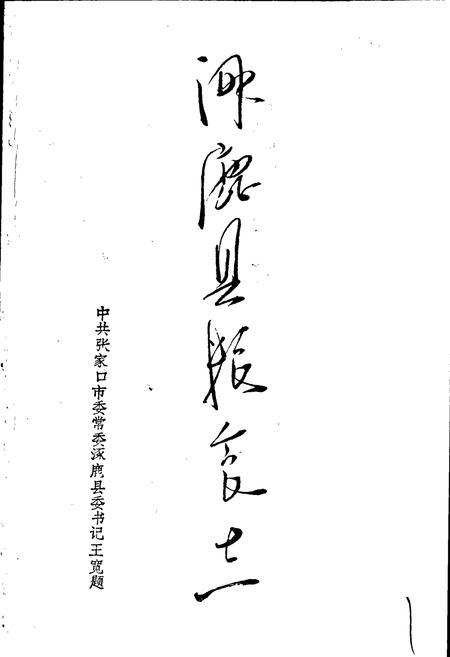 涿鹿县粮食志
中共张家口市委常委涿鹿县委书记王宽题